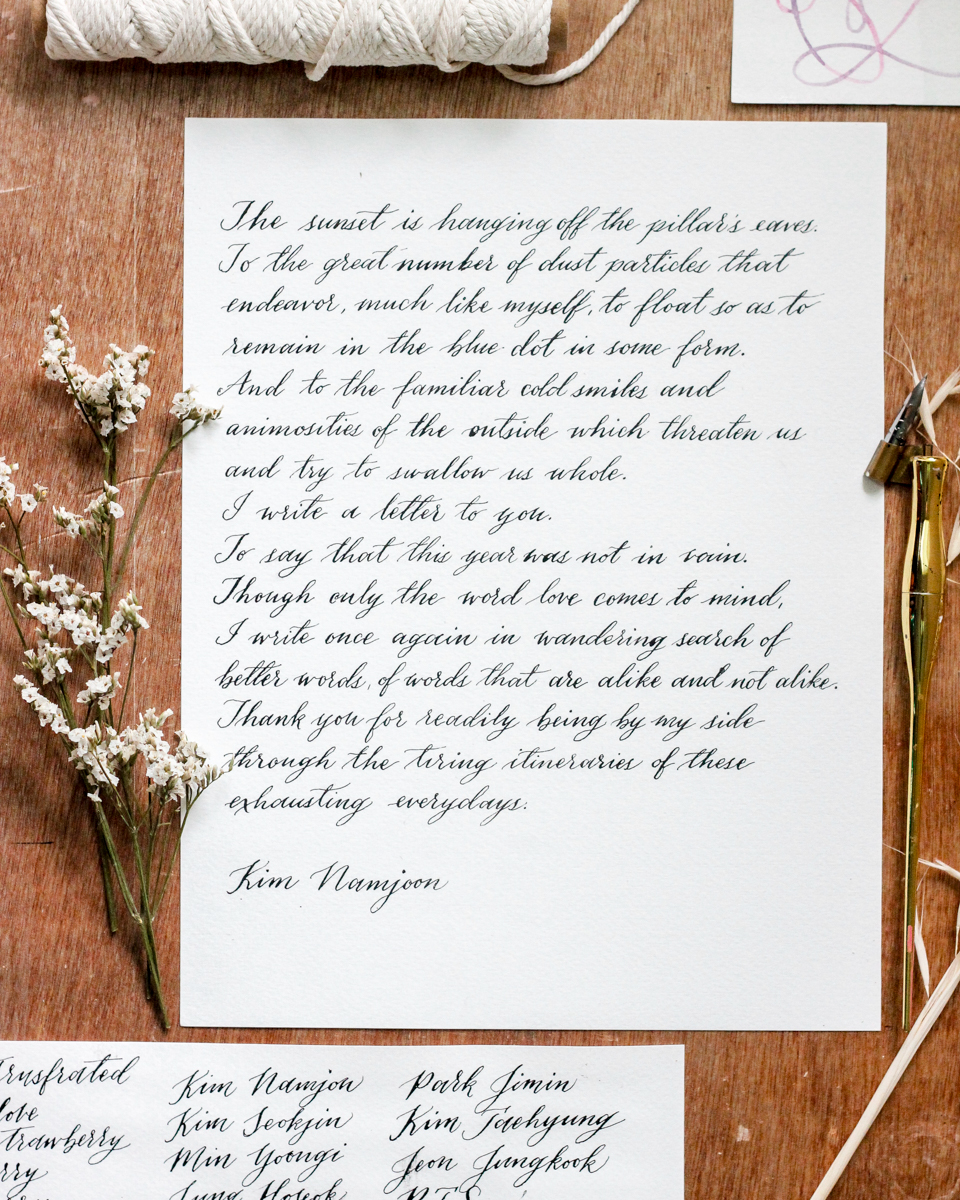 The sunset is hanging off the pillar's eaves.
To the great number of dust particles that
endeavor, much like myself, to float so as to
remain in the blue dot in some form.
And to the familiar cold smiles and
animosities of the outside which threaten us
and try to swallow us whole.
I write a letter to you.
To say that this year was not in vain.
Though only the word love comes to mind,
I write once again in wandering search of
better words, of words that are alike and not alike.
Thank you for readily being by my side
through the tiring itineraries of these
exhausting everydays.
Kim Namjoon
Trusfrated
love
trawberry
rry
Kim Namjon
Kim Seokjin
Min Yoongi
Jung Hoseok
Park Jimin
Kim Taehyung
Jeon Jungkook
BTS